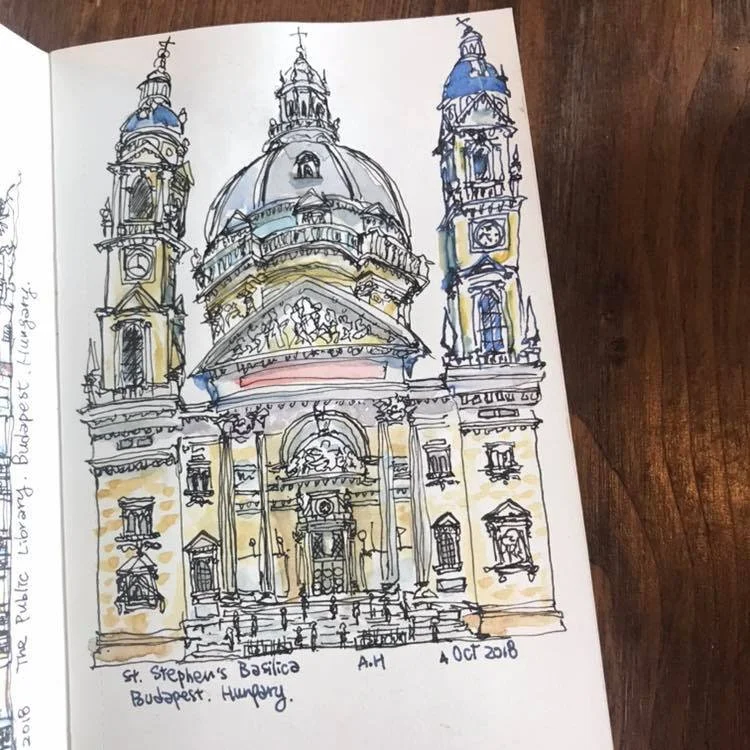 2018 The Public Library. Budapest. Hungary.
St. Stephen's Basilica
Budapest. Hungary.
A.H
4 Oct 2018